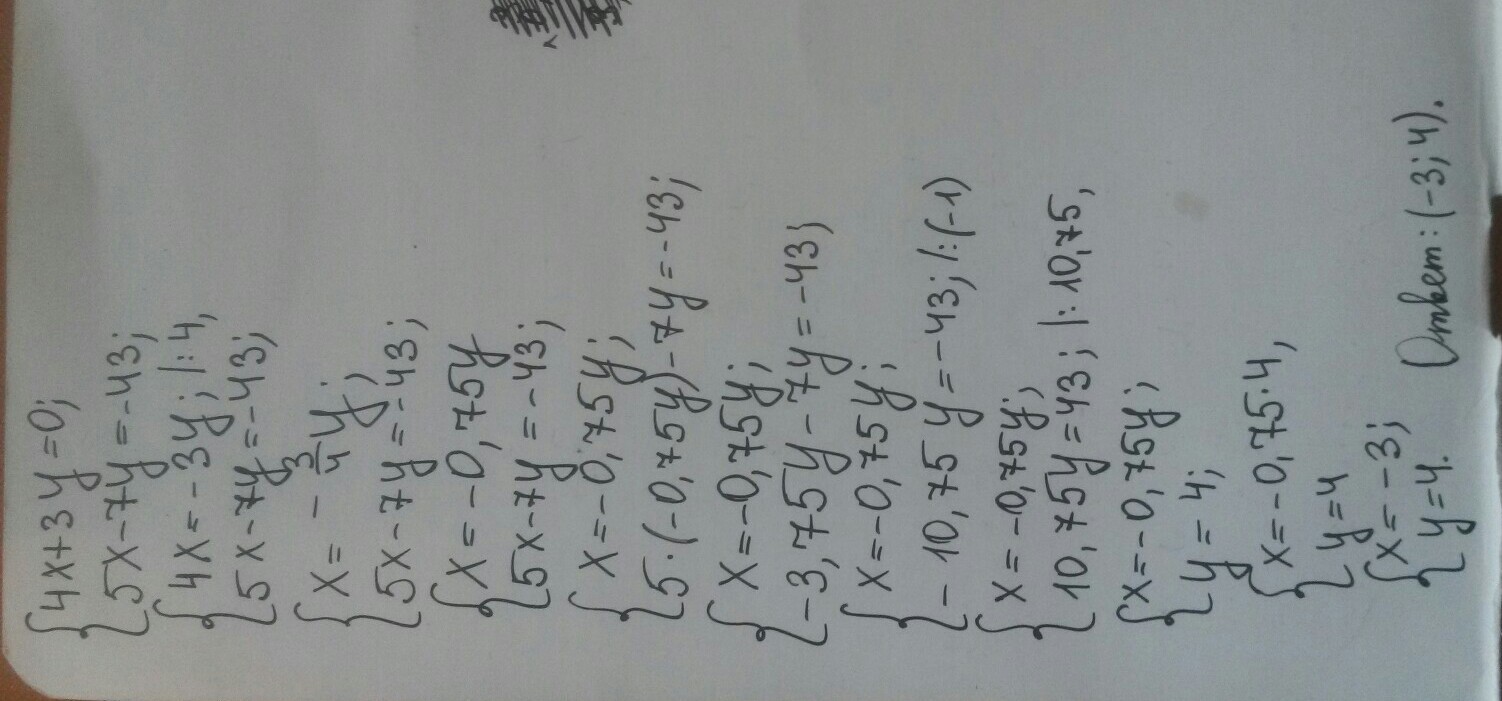 {4x+3y=0;
5x-7y=-43;
{4x=-3y; |:4,
5x-7y=-43;
{x=-3/4y;
5x-7y=-43;
{x=-0,75y
5x-7y=-43;
{x=-0,75y;
5·(-0,75y)-7y=-43;
{x=-0,75y;
-3,75y-7y=-43;
{x=-0,75y;
-10,75y=-43; |:(-1)
{x=-0,75y;
10,75y=43; |:10,75,
{x=-0,75y;
y=4;
{x=-0,75·4,
y=4
{x=-3;
y=4. Ответ: (-3; 4).